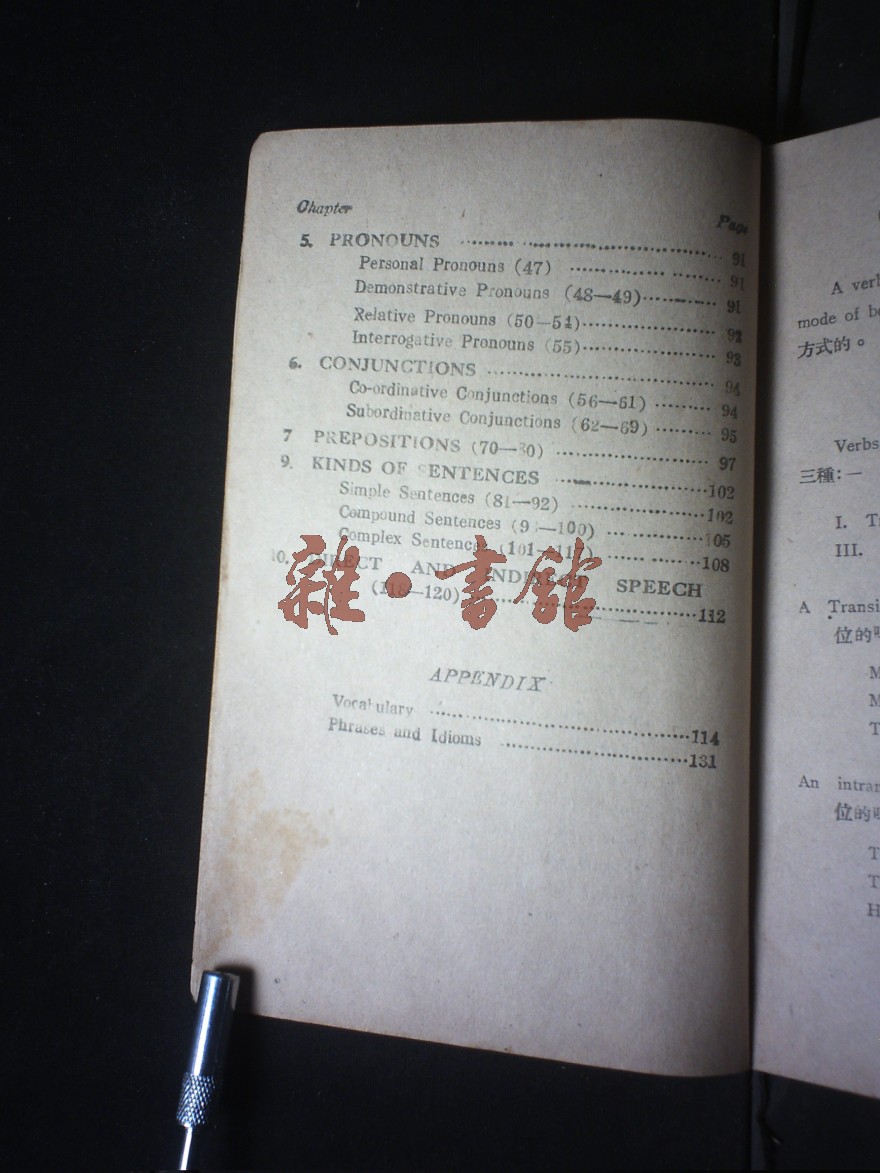 Chapter
Page
5. PRONOUNS ........................ 91
Personal Pronouns (47) ........................ 91
Demonstrative Pronouns (48—49) ............ 91
Relative Pronouns (50—54) .................. 92
Interrogative Pronouns (55) .................. 93
6. CONJUNCTIONS ........................ 94
Co-ordinative Conjunctions (56—61) ......... 94
Subordinative Conjunctions (62—69) ......... 95
7 PREPOSITIONS (70—80) .................. 97
9. KINDS OF SENTENCES ..................102
Simple Sentences (81—92) ..................102
Compound Sentences (9 —100) ...............105
Complex Sentences (101—11 ) ...............108
10. DIRECT AND INDIRECT SPEECH
(118—120) ........................112
雜·書館
APPENDIX
Vocabulary ..............................114
Phrases and Idioms ........................131
A verb
mode of
方式的。
Verbs
三種:—
I.
III.
A Transi
位的
M
M
T
An intran
位的
T
T
H